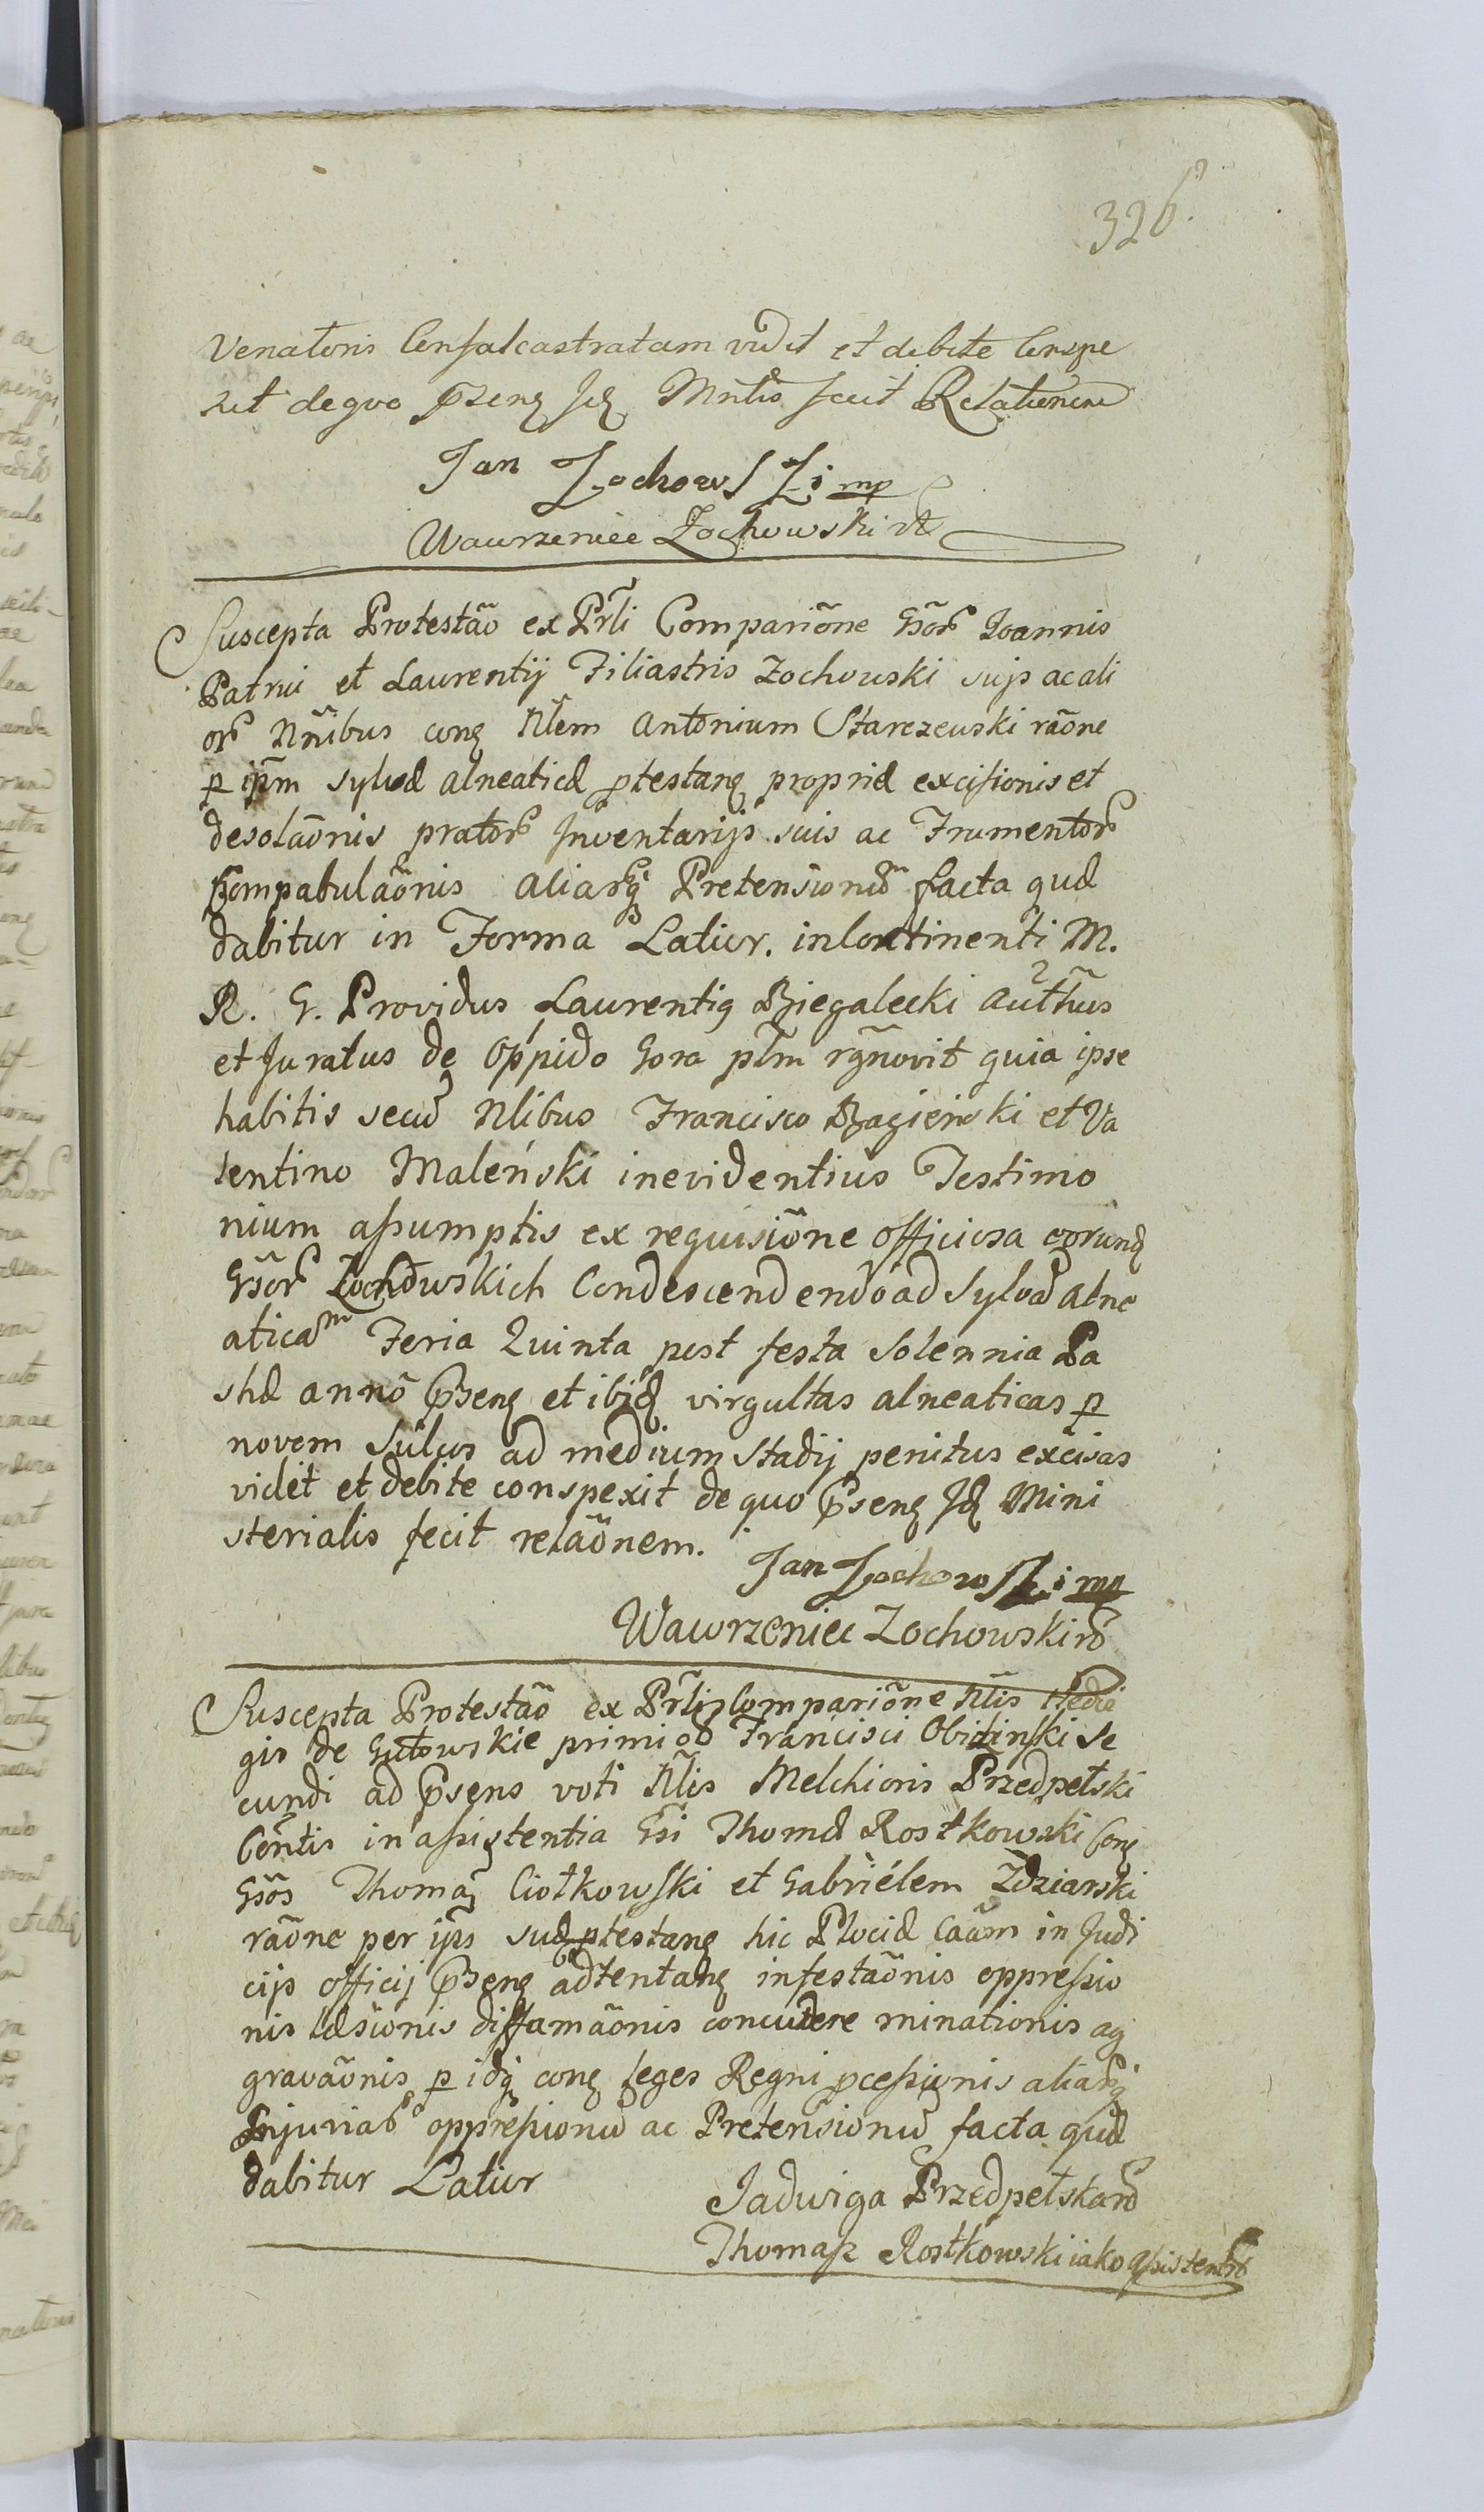 326.
Venatoris Consalcastratam vidit et debite Conspe
xit de quo p̃senꝫ Idꝫ Mnl̃is fecit Relationem
Jan Zochowski mp
Wawrzeniec Zochowski rȩ
Suscepta Protestaõ ex Pr̃li Compariõne Gs̃or Joannis
Patrui et Laurentij Filiastris Zochowski suis ac ali
or Nñibus conꝫ Nl̃em Antonium Starczewski raõne
p ip̃m Sylvæ alneaticæ protestanꝫ propriæ excisionis et
desolaõnis prator Inventarijs suis ac Frumentor
Compabulaõnis aliarqꝫ Pretensionũ facta quæ
dabitur in Forma Latior. in Continenti M.
R. G. Providus Laurentiq Biegalecki Auth̃us
et Juratus de Oppido Gora pl̃m rg̃novit quia ipse
habitis secũ Nlibus Francisco Bagieński et Va
lentino Maleński in evidentius Testimo
nium assumptis ex requisiõne officiosa eorunꝫ
Gs̃or Zochowskich Condescendendo ad Sylvã alne
aticam Feria Quinta post festa Solennia Pa
shæ anno p̃senꝫ et ibidꝫ virgultas alneaticas p
novem Sulcos ad medium Stadij penitus excisas
vidit et debite conspexit de quo p̃senꝫ Idꝫ Mini
sterialis fecit relaõnem.
Jan Zochowski mp
Wawrzeniec Zochowski rȩ
Suscepta Protestaõ ex Pr̃li Compariõne Nl̃is Hedvi
gis de Gutowskie primi oo Francisci Obidzinski se
cundi ad p̃sens voti Nl̃is Melchioris Przedpełski
Con̄tis in assistentia Gs̃i Thomæ Rostkowski Conꝫ
Gs̃os Thomaꝫ Ciołkowski et Gabriélem Zdziarski
raõne per ip̃s suæ ptestanꝫ hic Plociæ Caãm in Judi
cijs officij p̃senꝫ adtentanꝫ infestaõnis oppressio
nis læsionis diffamaõnis concutere minationis ag
gravaõnis p idqꝫ conꝫ leges Regni pcessionis aliarqꝫ
Injuriar oppressionũ ac Pretensionũ facta quæ
dabitur Latior
Jadwiga Przedpełska rȩ
Thomasz Rostkowski iako assistent rȩ